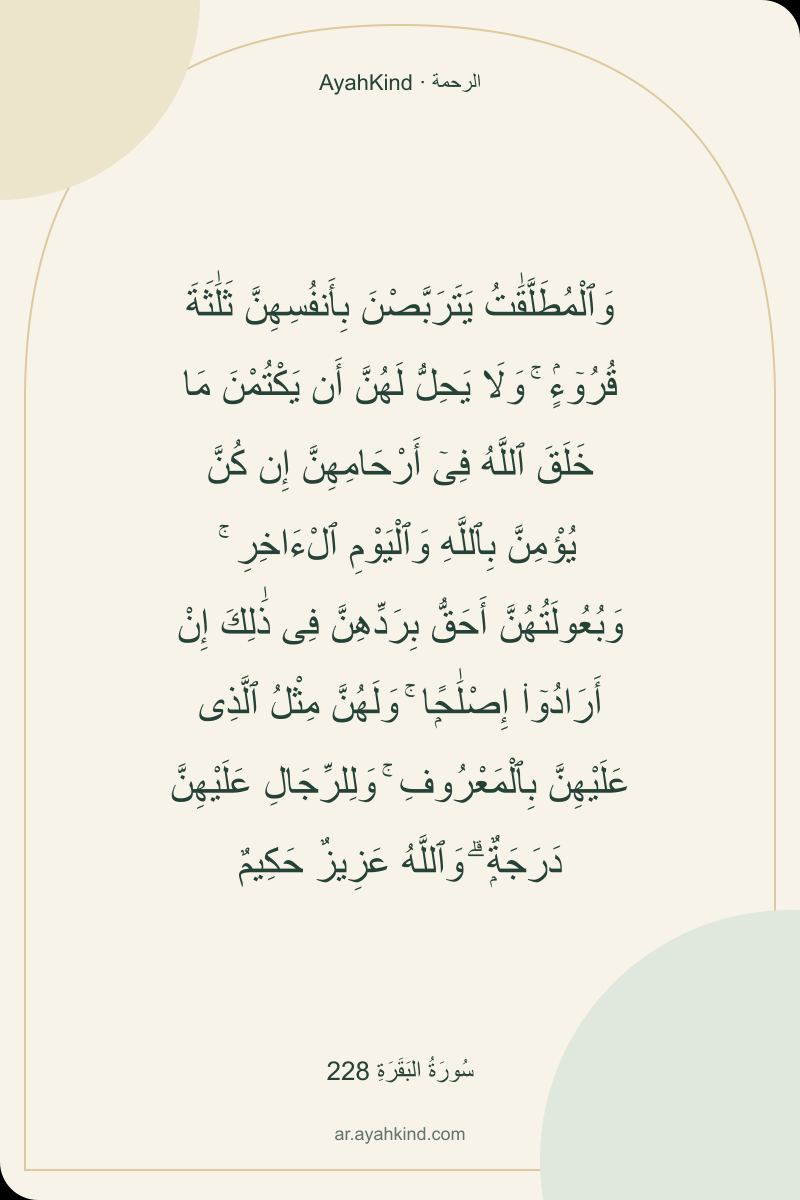 AyahKind · الرحمة
وَٱلْمُطَلَّقَٰتُ يَتَرَبَّصْنَ بِأَنفُسِهِنَّ ثَلَٰثَةَ
قُرُوٓءٍۢ ۚ وَلَا يَحِلُّ لَهُنَّ أَن يَكْتُمْنَ مَا
خَلَقَ ٱللَّهُ فِىٓ أَرْحَامِهِنَّ إِن كُنَّ
يُؤْمِنَّ بِٱللَّهِ وَٱلْيَوْمِ ٱلْءَاخِرِ ۚ
وَبُعُولَتُهُنَّ أَحَقُّ بِرَدِّهِنَّ فِى ذَٰلِكَ إِنْ
أَرَادُوٓا۟ إِصْلَٰحًۭا ۚ وَلَهُنَّ مِثْلُ ٱلَّذِى
عَلَيْهِنَّ بِٱلْمَعْرُوفِ ۚ وَلِلرِّجَالِ عَلَيْهِنَّ
دَرَجَةٌۭ ۗ وَٱللَّهُ عَزِيزٌ حَكِيمٌ
سُورَةُ البَقَرَةِ 228
ar.ayahkind.com